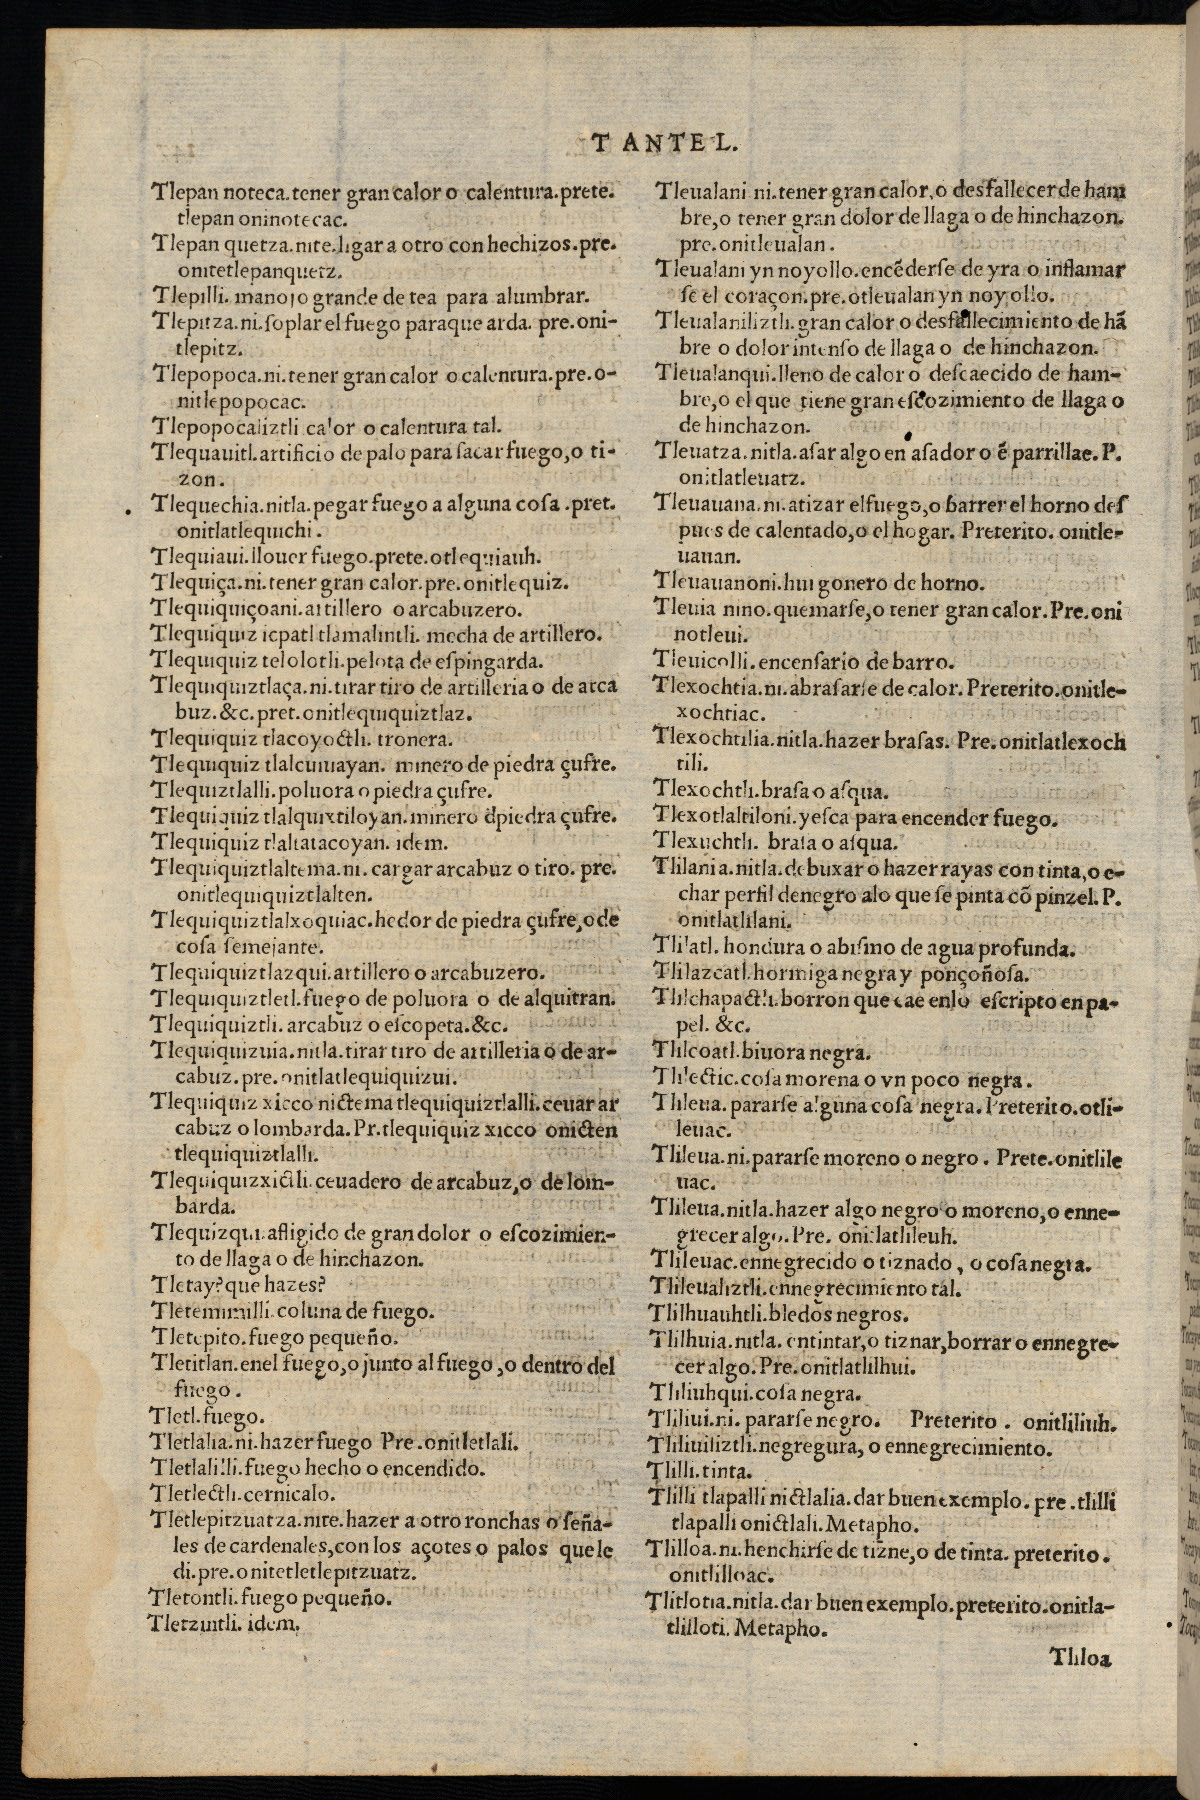 T ANTE L.
Tlepan noteca.tener gran calor o calentura.prete.
tlepan oninotecac.
Tlepan quetza.nite.ligar a otro con hechizos.pre.
onitetlepanquetz.
Tlepilli. manojo grande de tea para alumbrar.
Tlepitza.ni.ſoplar el fuego paraque arda. pre.oni-
tlepitz.
Tlepopoca.ni.tener gran calor o calentura.pre.o-
nitlepopocac.
Tlepopocaliztli calor o calentura tal.
Tlequauitl.artificio de palo para ſacar fuego,o ti-
zon.
Tlequechia.nitla.pegar fuego a alguna coſa .pret.
onitlatlequichi.
Tlequiaui.llouer fuego.prete.otlequiauh.
Tlequiça.ni.tener gran calor.pre.onitlequiz.
Tlequiquiçoani.artillero o arcabuzero.
Tlequiquiz icpatl tlamalintli. mecha de artillero.
Tlequiquiz telolotli.pelota de eſpingarda.
Tlequiquiztlaça.ni.tirar tiro de artilleria o de arca
buz.&c.pret.onitlequiquiztlaz.
Tlequiquiz tlacoyoctli. tronera.
Tlequiquiz tlalcuiuayan. minero de piedra çufre.
Tlequiztlalli.poluora o piedra çufre.
Tlequiquiz tlalquixtiloyan.minero dpiedra çufre.
Tlequiquiz tlaltatacoyan. idem.
Tlequiquiztlaltema.ni. cargar arcabuz o tiro. pre.
onitlequiquiztlalten.
Tlequiquiztlalxoquiac.hedor de piedra çufre,o de
coſa ſemejante.
Tlequiquiztlazqui.artillero o arcabuzero.
Tlequiquiztletl.fuego de poluora o de alquitran.
Tlequiquiztli.arcabuz o eſcopeta.&c.
Tlequiquizuia.nitla.tirar tiro de artilleria o de ar-
cabuz.pre.onitlatlequiquizui.
Tlequiquiz xicco nictema tlequiquiztlalli.ceuar ar
cabuz o lombarda.Pr.tlequiquiz xicco onicten
tlequiquiztlalli.
Tlequiquizxictli.ceuadero de arcabuz,o de lom-
barda.
Tlequizqui.afligido de gran dolor o eſcozimien-
to de llaga o de hinchazon.
Tletay?que hazes?
Tletemimilli.coluna de fuego.
Tletepito.fuego pequeño.
Tletitlan.enel fuego,o junto al fuego ,o dentro del
fuego .
Tletl.fuego.
Tletlalia.ni.hazer fuego Pre.onitletlali.
Tletlalilli.fuego hecho o encendido.
Tletlectli.cernicalo.
Tletlepitzuatza.nite.hazer a otro ronchas o ſeña-
les de cardenales,con los açotes o palos que le
di.pre.onitetletlepitzuatz.
Tletontli.fuego pequeño.
Tletzintli. idem.
Tleualani ni.tener gran calor,o desfallecer de ham
bre,o tener gran dolor de llaga o de hinchazon.
pre.onitleualan.
Tleualani yn noyollo.encēderſe de yra o inflamar
ſe el coraçon.pre.otleualan yn noyollo.
Tleualaniliztli.gran calor o desfallecimiento de hā
bre o dolor intenſo de llaga o de hinchazon.
Tleualanqui.lleno de calor o deſcaecido de ham-
bre,o el que tiene gran eſcozimiento de llaga o
de hinchazon.
Tleuatza.nitla.aſar algo en aſador o ē parrillae. P.
onitlatleuatz.
Tleuauana.ni.atizar el fuego,o barrer el horno deſ
pues de calentado,o el hogar. Preterito. onitle-
uauan.
Tleuauanoni.hurgonero de horno.
Tleuia nino.quemarſe,o tener gran calor.Pre.oni
notleui.
Tleuicolli.encenſario de barro.
Tlexochtia.ni.abraſarſe de calor. Preterito.onitle-
xochtiac.
Tlexochtilia.nitla.hazer braſas. Pre.onitlatlexoch
tili.
Tlexochtli.braſa o aſqua.
Tlexotlaltiloni.yeſca para encender fuego.
Tlexuchtli. braſa o aſqua.
Tlilania.nitla.debuxar o hazer rayas con tinta,o e-
char perfil de negro alo que ſe pinta cō pinzel.P.
onitlatlilani.
Tlilatl. hondura o abiſmo de agua profunda.
Tlilazcatl.hormiga negra y ponçoñoſa.
Tlilchapactli.borron que cae enlo eſcripto en pa-
pel. &c.
Tlilcoatl.biuora negra.
Tlilectic.coſa morena o vn poco negra.
Tlileua. pararſe alguna coſa negra.Preterito.otli-
leuac.
Tlileua.ni.pararſe moreno o negro . Prete.onitlile
uac.
Tlileua.nitla.hazer algo negro o moreno,o enne-
grecer algo.Pre. onitlatlileuh.
Tlileuac.ennegrecido o tiznado , o coſa negra.
Tlileualiztli.ennegrecimiento tal.
Tlilhuauhtli.bledos negros.
Tlilhuia.nitla. entintar,o tiznar,borrar o ennegre-
cer algo.Pre.onitlatlilhui.
Tliliuhqui.coſa negra.
Tliliui.ni. pararſe negro. Preterito . onitliliuh.
Tliliuiliztli.negregura, o ennegrecimiento.
Tlilli.tinta.
Tlilli tlapalli nictlalia.dar buen exemplo. pre .tlilli
tlapalli onictlali.Metapho.
Tlilloa.ni.henchirſe de tizne,o de tinta. preterito.
onitlilloac.
Tlitlotia.nitla.dar buen exemplo.preterito.onitla-
tlilloti. Metapho.
Tliloa